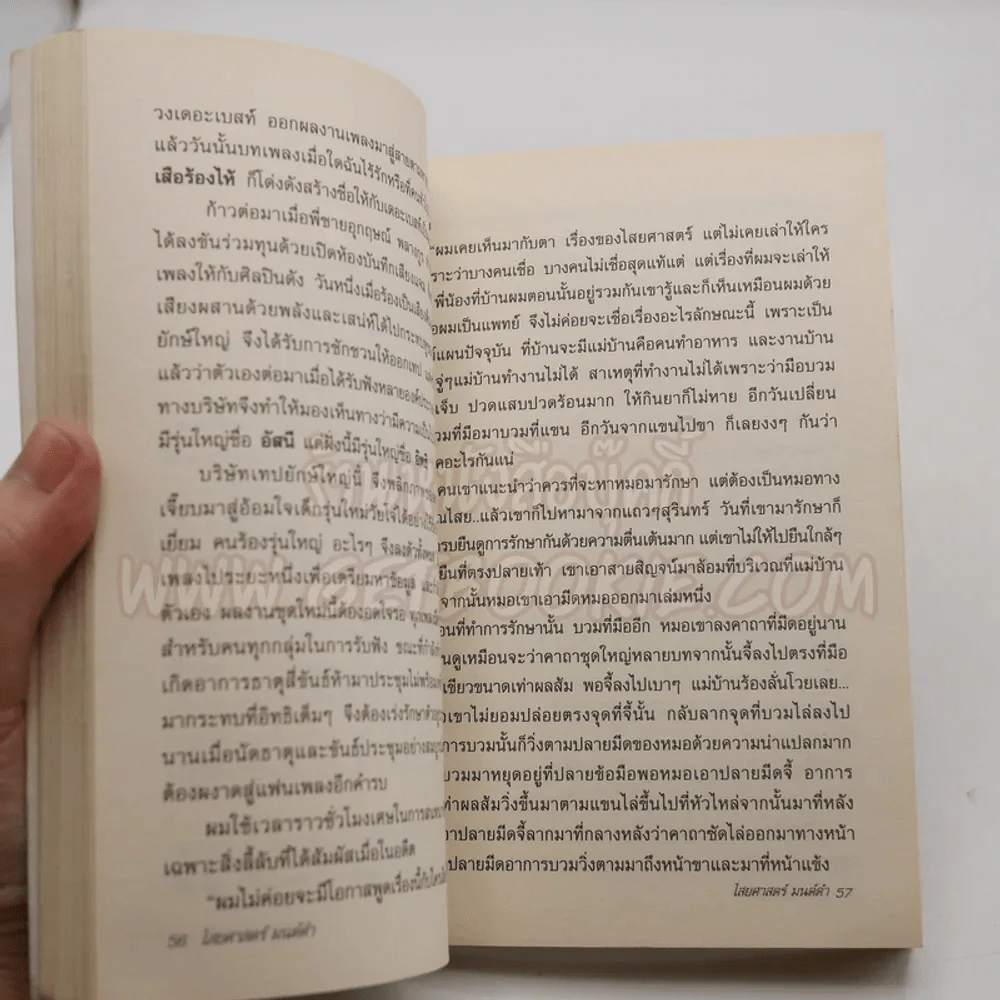 วงเดอะเบสท์ ออกผลงานเพลงมาสู่สายตา
แล้ววันนั้นบทเพลงเมื่อใดฉันไร้รักหรือที่
เสือร้องไห้ ก็โด่งดังสร้างชื่อให้กับเดอะเบสท์
ก้าวต่อมาเมื่อพี่ชายอุกฤษณ์ พลางกูร
ได้ลงขันร่วมทุนด้วยเปิดห้องบันทึกเสียง
เพลงให้กับศิลปินดัง วันหนึ่งเมื่อร้องเป็น
เสียงผสานด้วยพลังและเสน่ห์ได้ไปกระทบ
ยักษ์ใหญ่ จึงได้รับการชักชวนให้ออกเทป
แล้วว่าตัวเองต่อมาเมื่อได้รับฟังหลายองค์ประ
ทางบริษัทจึงทำให้มองเห็นทางว่ามีความ
มีรุ่นใหญ่ชื่อ อัสนี แต่ฝั่งนี้มีรุ่นใหญ่ชื่อ อิทธิ
บริษัทเทปยักษ์ใหญ่นี้ จึงพลิกภาพ
เจี๊ยบมาสู่อ้อมใจเด็กรุ่นใหม่วัยโจ๋ได้อย่าง
เยี่ยม คนร้องรุ่นใหญ่ อะไรๆ จึงลงตัวทั้ง
เพลงไประยะหนึ่งเพื่อเตรียมหาข้อมูล และ
ตัวเอง ผลงานชุดใหม่นี้ต้องอดใจรอ ทุกเพลง
สำหรับคนทุกกลุ่มในการรับฟัง ขณะที่กำลัง
เกิดอาการธาตุสี่ขันธ์ห้ามาประชุมไม่พร้อม
มากระทบที่อิทธิเต็มๆ จึงต้องเร่งรักษาตัว
นานเมื่อนัดธาตุและขันธ์ประชุมอย่างสมบูรณ์
ต้องผงาดสู่แฟนเพลงอีกคำรบ
ผมใช้เวลาราวชั่วโมงเศษในการสนทนา
เฉพาะสิ่งลี้ลับที่ได้สัมผัสเมื่อในอดีต
“ผมไม่ค่อยจะมีโอกาสพูดเรื่องนี้กับใคร
56 ไสยศาสตร์ มนต์ดำ
“ผมเคยเห็นมากับตา เรื่องของไสยศาสตร์ แต่ไม่เคยเล่าให้ใคร
ราะว่าบางคนเชื่อ บางคนไม่เชื่อสุดแท้แต่ แต่เรื่องที่ผมจะเล่าให้
พี่น้องที่บ้านผมตอนนั้นอยู่รวมกันเขารู้และก็เห็นเหมือนผมด้วย
อผมเป็นแพทย์ จึงไม่ค่อยจะเชื่อเรื่องอะไรลักษณะนี้ เพราะเป็น
แผนปัจจุบัน ที่บ้านจะมีแม่บ้านคือคนทำอาหาร และงานบ้าน
จู่ๆแม่บ้านทำงานไม่ได้ สาเหตุที่ทำงานไม่ได้เพราะว่ามือบวม
เจ็บ ปวดแสบปวดร้อนมาก ให้กินยาก็ไม่หาย อีกวันเปลี่ยน
วมที่มือมาบวมที่แขน อีกวันจากแขนไปขา ก็เลยงงๆ กันว่า
คอะไรกันแน่
คนเขาแนะนำว่าควรที่จะหาหมอมารักษา แต่ต้องเป็นหมอทาง
นไสย..แล้วเขาก็ไปหามาจากแถวๆสุรินทร์ วันที่เขามารักษาก็
รบยืนดูการรักษากันด้วยความตื่นเต้นมาก แต่เขาไม่ให้ไปยืนใกล้ๆ
ยืนที่ตรงปลายเท้า เขาเอาสายสิญจน์มาล้อมที่บริเวณที่แม่บ้าน
จากนั้นหมอเขาเอามีดหมอออกมาเล่มหนึ่ง
อนที่ทำการรักษานั้น บวมที่มืออีก หมอเขาลงคาถาที่มีดอยู่นาน
นดูเหมือนจะว่าคาถาชุดใหญ่หลายบทจากนั้นจี้ลงไปตรงที่มือ
เขียวขนาดเท่าผลส้ม พอจี้ลงไปเบาๆ แม่บ้านร้องลั่นโวยเลย...
วเขาไม่ยอมปล่อยตรงจุดที่จี้นั้น กลับลากจุดที่บวมไล่ลงไป
การบวมนั้นก็วิ่งตามปลายมีดของหมอด้วยความน่าแปลกมาก
บวมมาหยุดอยู่ที่ปลายข้อมือพอหมอเอาปลายมีดจี้ อาการ
ท่าผลส้มวิ่งขึ้นมาตามแขนไล่ขึ้นไปที่หัวไหล่จากนั้นมาที่หลัง
อาปลายมีดจี้ลากมาที่กลางหลังว่าคาถาซัดไล่ออกมาทางหน้า
ปลายมีดอาการบวมวิ่งตามมาถึงหน้าขาและมาที่หน้าแข้ง
ไสยศาสตร์ มนต์ดำ 57